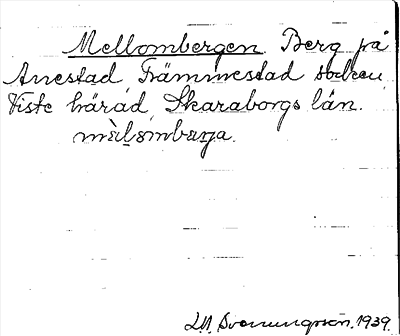 Mellombergen. Berg på
Anestad Främmestad socken
Viste härad, Skaraborgs län.
L.M. Svenungsson. 1939.